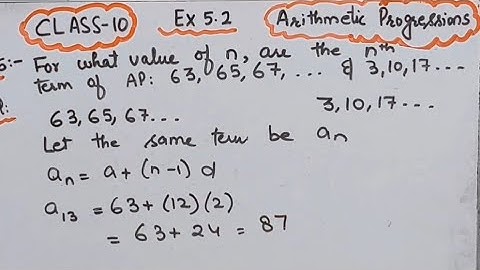 CLASS-10 Ex 5.2 Arithmetic Progressions
5:- For what value of n, are the nth
term of AP: 63, 65, 67, ... & 3,10,17...
63,65,67... 3,10,17...
Let the same term be an
an = a + (n-1) d
a13 = 63 + (12)(2)
= 63 + 24 = 87